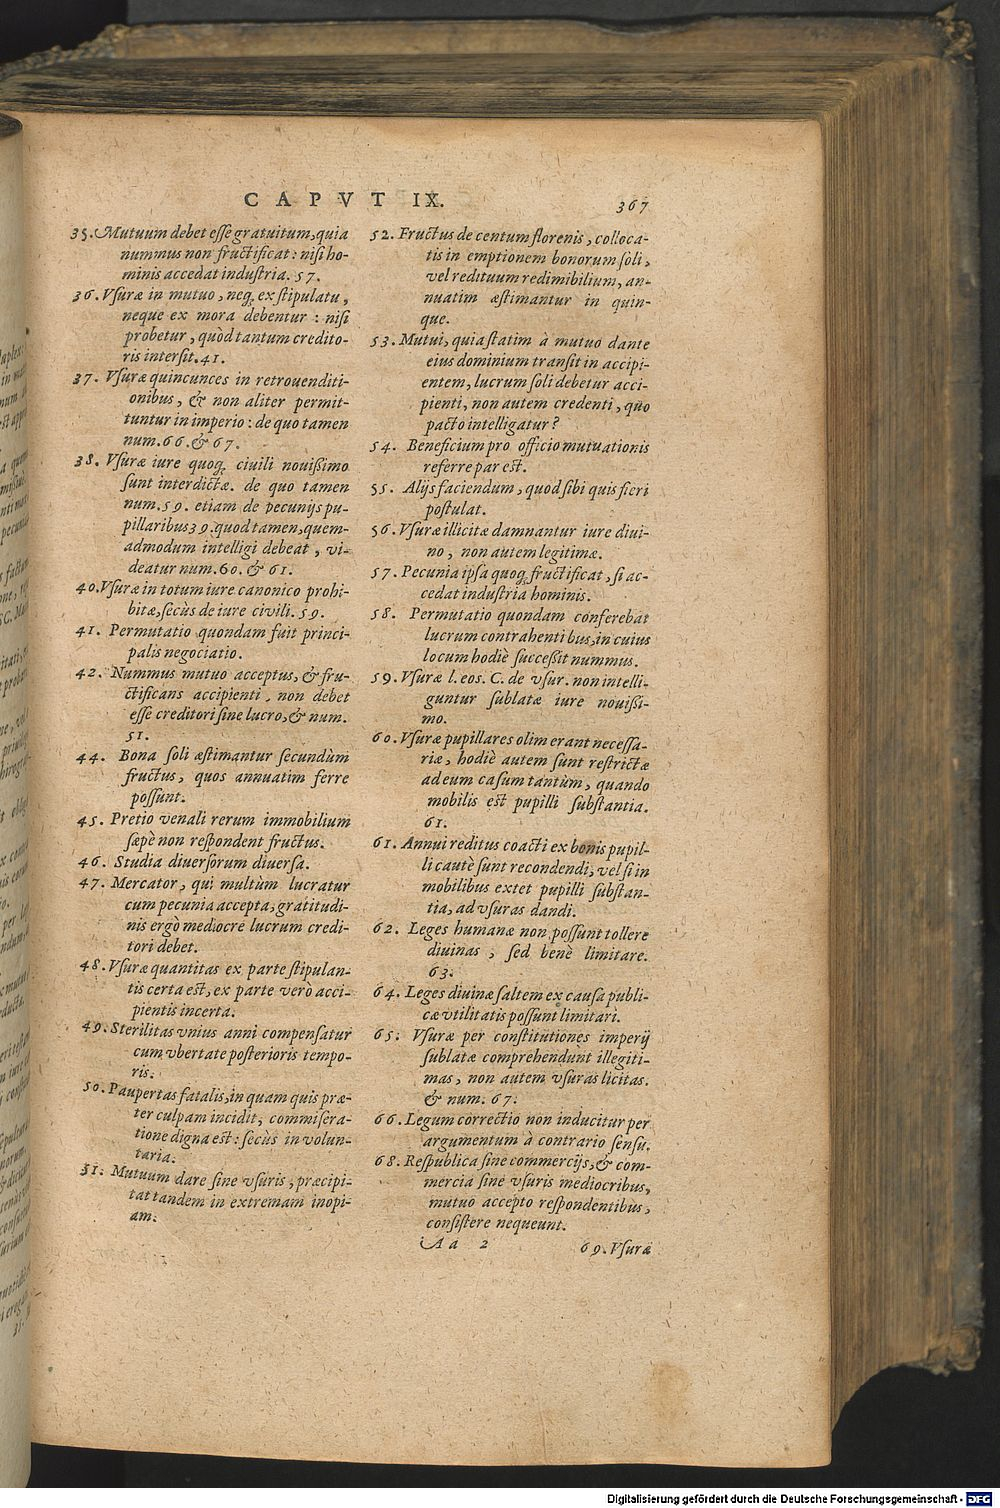 CAPVT IX.
367
35. Mutuum debet esse gratuitum, quia
nummus non fructificat: nisi ho-
minis accedat industria. 57.
36. Vsuræ in mutuo, neq; ex stipulatu,
neque ex mora debentur: nisi
probetur, quòd tantum credito-
ris intersit. 41.
37. Vsuræ quincunces in retrouenditi-
onibus, & non aliter permit-
tuntur in imperio: de quo tamen
num. 66. & 67.
38. Vsuræ iure quoq; ciuili nouißimo
sunt interdictæ. de quo tamen
num. 59. etiam de pecunijs pu-
pillaribus 39. quod tamen, quem-
admodum intelligi debeat, vi-
deatur num. 60. & 61.
40. Vsuræ in totum iure canonico prohi-
bitæ, secùs de iure ciuili. 59.
41. Permutatio quondam fuit princi-
palis negociatio.
42. Nummus mutuo acceptus, & fru-
ctificans accipienti, non debet
esse creditori sine lucro, & num.
51.
44. Bona soli æstimantur secundùm
fructus, quos annuatim ferre
possunt.
45. Pretio venali rerum immobilium
sæpè non respondent fructus.
46. Studia diuersorum diuersa.
47. Mercator, qui multùm lucratur
cum pecunia accepta, gratitudi-
nis ergò mediocre lucrum credi-
tori debet.
48. Vsuræ quantitas ex parte stipulan-
tis certa est, ex parte verò acci-
pientis incerta.
49. Sterilitas vnius anni compensatur
cum vbertate posterioris tempo-
ris.
50. Paupertas fatalis, in quam quis præ-
ter culpam incidit, commisera-
tione digna est: secùs in volun-
taria.
51. Mutuum dare sine vsuris, præcipi-
tat tandem in extremam inopi-
am.
52. Fructus de centum florenis, colloca-
tis in emptionem bonorum soli,
vel redituum redimibilium, an-
nuatim æstimantur in quin-
que.
53. Mutui, quia statim à mutuo dante
eius dominium transit in accipi-
entem, lucrum soli debetur acci-
pienti, non autem credenti, quo
pacto intelligatur?
54. Beneficium pro officio mutuationis
referre par est.
55. Alijs faciendum, quod sibi quis fieri
postulat.
56. Vsuræ illicitæ damnantur iure diui-
no, non autem legitimæ.
57. Pecunia ipsa quoq; fructificat, si ac-
cedat industria hominis.
58. Permutatio quondam conferebat
lucrum contrahentibus, in cuius
locum hodiè successit nummus.
59. Vsuræ l. eos. C. de vsur. non intelli-
guntur sublatæ iure nouißi-
mo.
60. Vsuræ pupillares olim erant necessa-
riæ, hodiè autem sunt restrictæ
ad eum casum tantùm, quando
mobilis est pupilli substantia.
61.
61. Annui reditus coacti ex bonis pupil-
li cautè sunt recondendi, vel si in
mobilibus extet pupilli substan-
tia, ad vsuras dandi.
62. Leges humanæ non possunt tollere
diuinas, sed benè limitare.
63.
64. Leges diuinæ saltem ex causa publi-
cæ vtilitatis possunt limitari.
65. Vsuræ per constitutiones imperij
sublatæ comprehendunt illegiti-
mas, non autem vsuras licitas.
& num. 67.
66. Legum correctio non inducitur per
argumentum à contrario sensu.
68. Respublica sine commercijs, & com-
mercia sine vsuris mediocribus,
mutuo accepto respondentibus,
consistere nequeunt.
Aa 2
69. Vsuræ
Digitalisierung gefördert durch die Deutsche Forschungsgemeinschaft - DFG